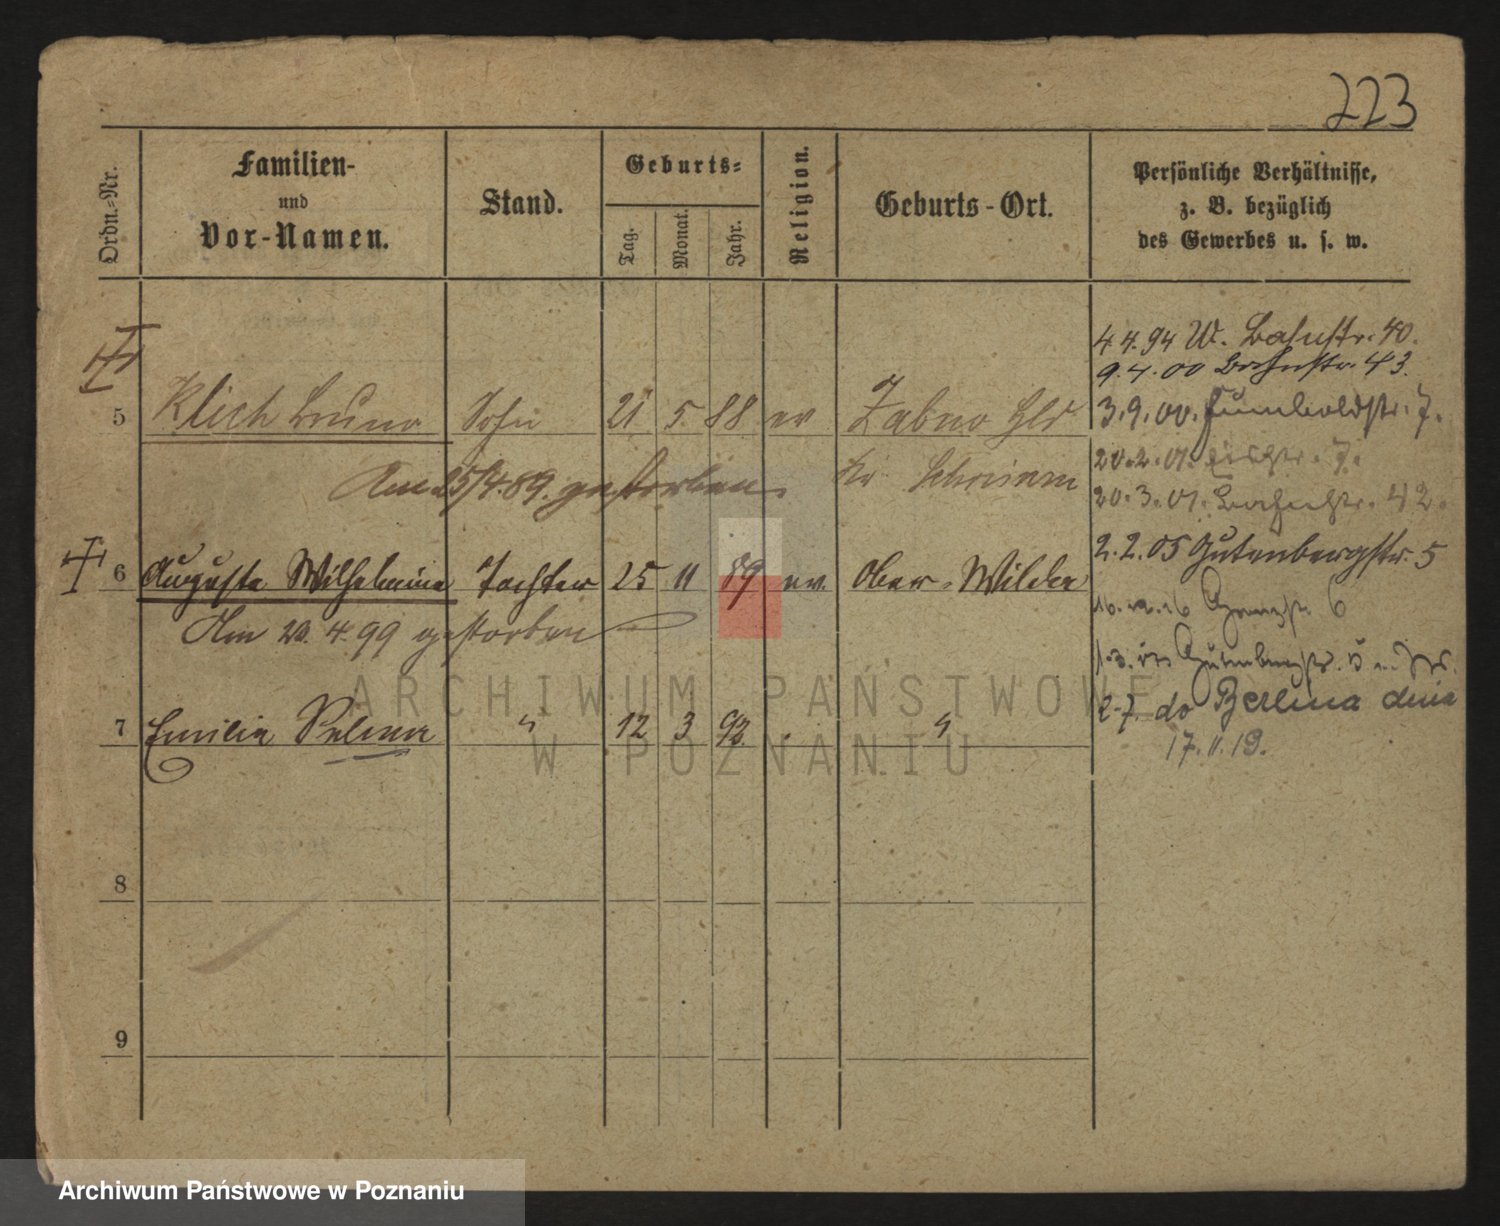 223
Ordn.-Nr.
Familien-
und
Vor-Namen.
Stand.
Geburts-
Tag.
Monat.
Jahr.
Religion.
Geburts-Ort.
Persönliche Verhältnisse,
z. B. bezüglich
des Gewerbes u. s. w.
4.4.94 W. Bahnstr. 40.
9.4.00 Bahnstr. 43.
5 Klich Bruno Sohn 21 5. 88 ev Zabno
3.9.00. Humboldstr. 7.
Am 25/4.89. gestorben. Kr Schrimm
20.2.01. 7.
20.3.01. Bahnstr. 42.
6 Auguste Wilhelmine Tochter 25 11 89 ev. Ober-Wilda
2.2.05 Gutenbergstr. 5
Am 4.99 gestorben
Grenzstr. 6
Gutenbergstr. 5
7 Emilie Selma " 12 3 92. "
do Berlina dnia
17.11.19.
8
9
ARCHIWUM PAŃSTWOWE
W POZNANIU
Archiwum Państwowe w Poznaniu